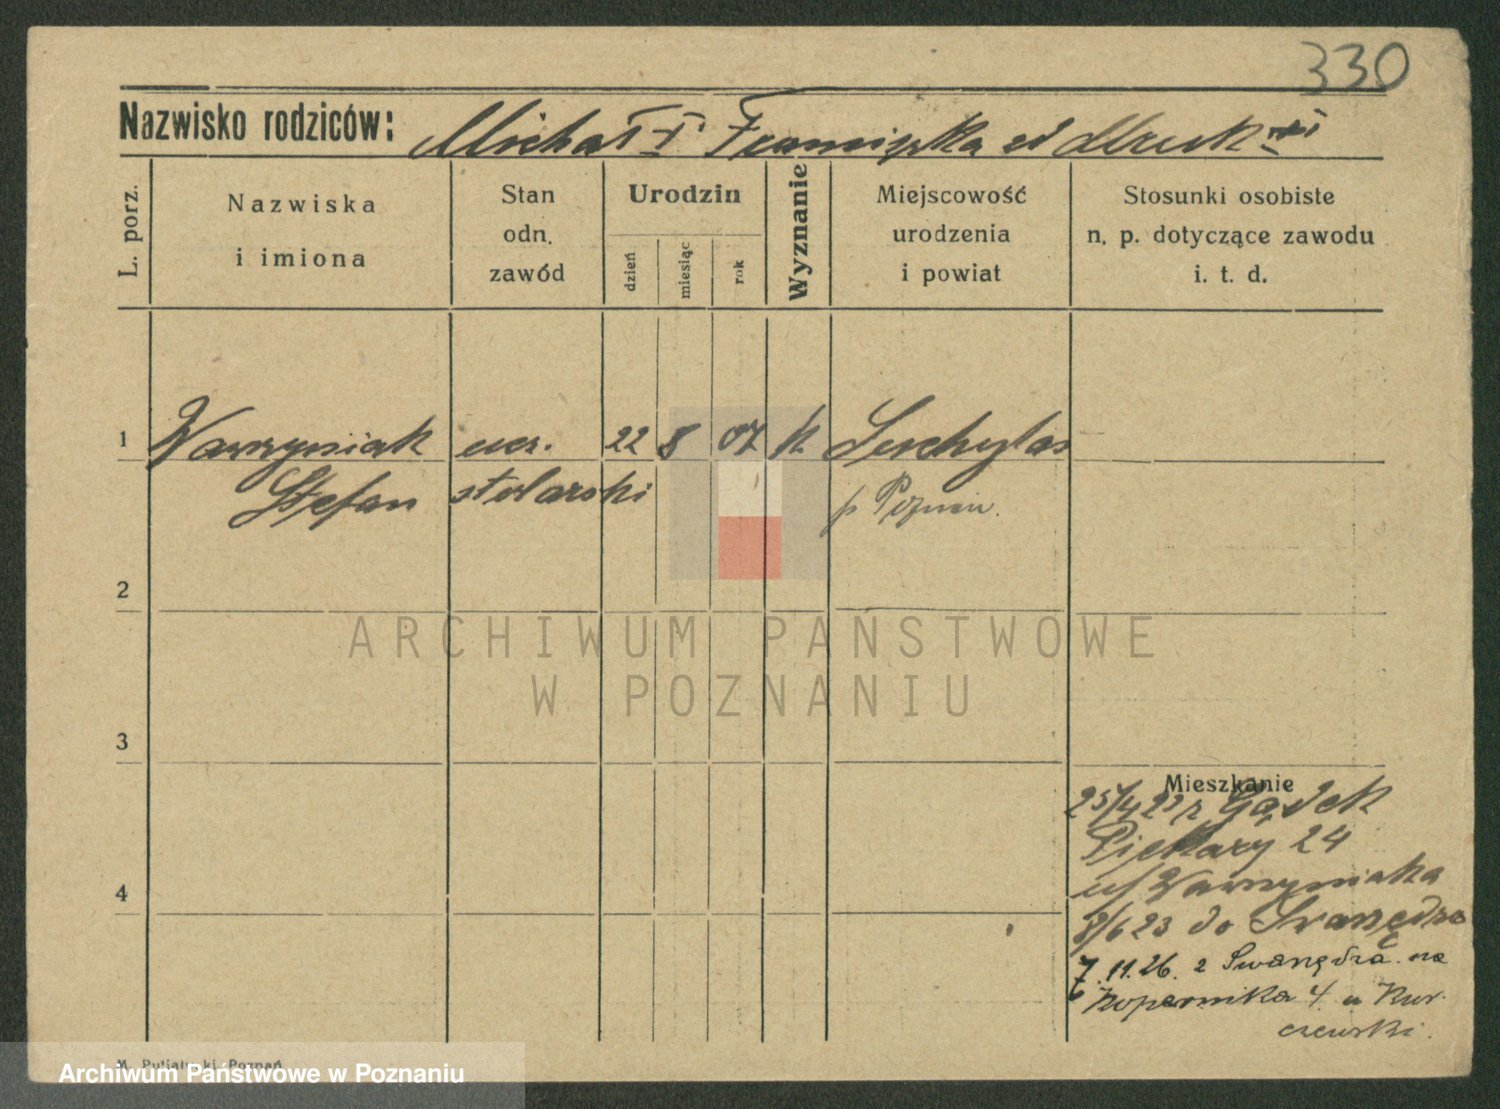 330
Nazwisko rodziców: Michał i Franciszka
L. porz.
Nazwiska
i imiona
Stan
odn.
zawód
Urodzin
dzień
miesiąc
rok
Wyznanie
Miejscowość
urodzenia
i powiat
Stosunki osobiste
n. p. dotyczące zawodu
i. t. d.
1 Wawrzyniak ucz. 22 8 07 k. Suchylas
Stefan stolarski p Poznań.
2
ARCHIWUM PAŃSTWOWE
W POZNANIU
3
Mieszkanie
25/4 23 z Gądek
Piekary 24
u/ Wawrzyniaka
8/6 23 do Swarzędza
7.11.26. z Swarzędza na
Kopernika 4 u Kur-
czewski.
4
Archiwum Państwowe w Poznaniu